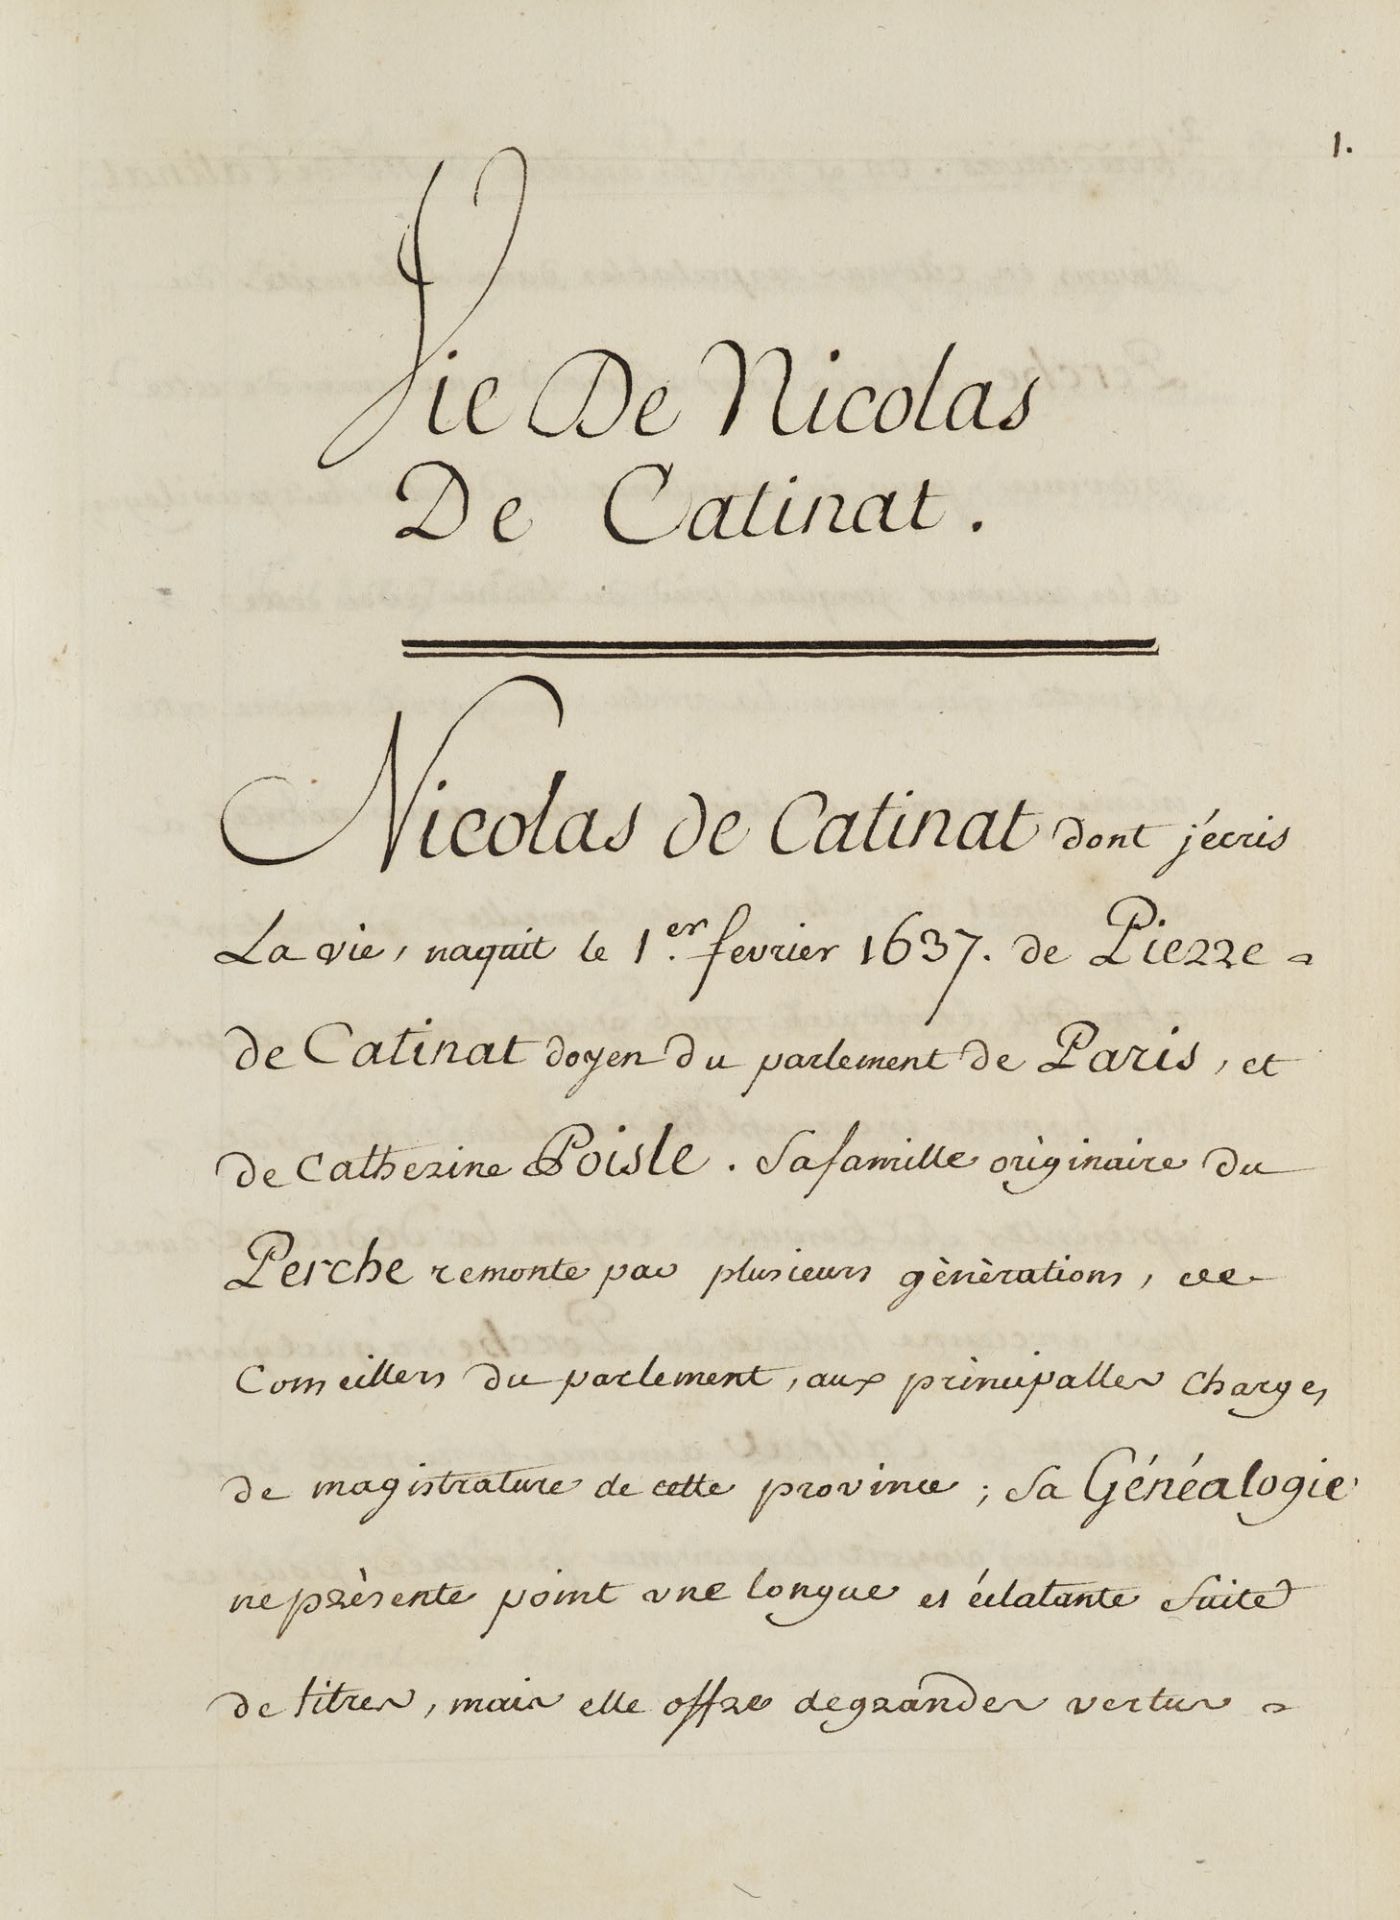 1.
Vie De Nicolas
De Catinat.
Nicolas de Catinat dont j'écris
La vie, naquit le 1.er fevrier 1637. de Pierre
de Catinat doyen du parlement de Paris, et
de Catherine Poisle. Sa famille originaire du
Perche remonte par plusieurs gènèrations, de
Conseillers du parlement, aux principalles charges
de magistrature de cette province; Sa Généalogie
ne prèsente point une longue et éclatante Suite
de titres, mais elle offre de grandes vertus